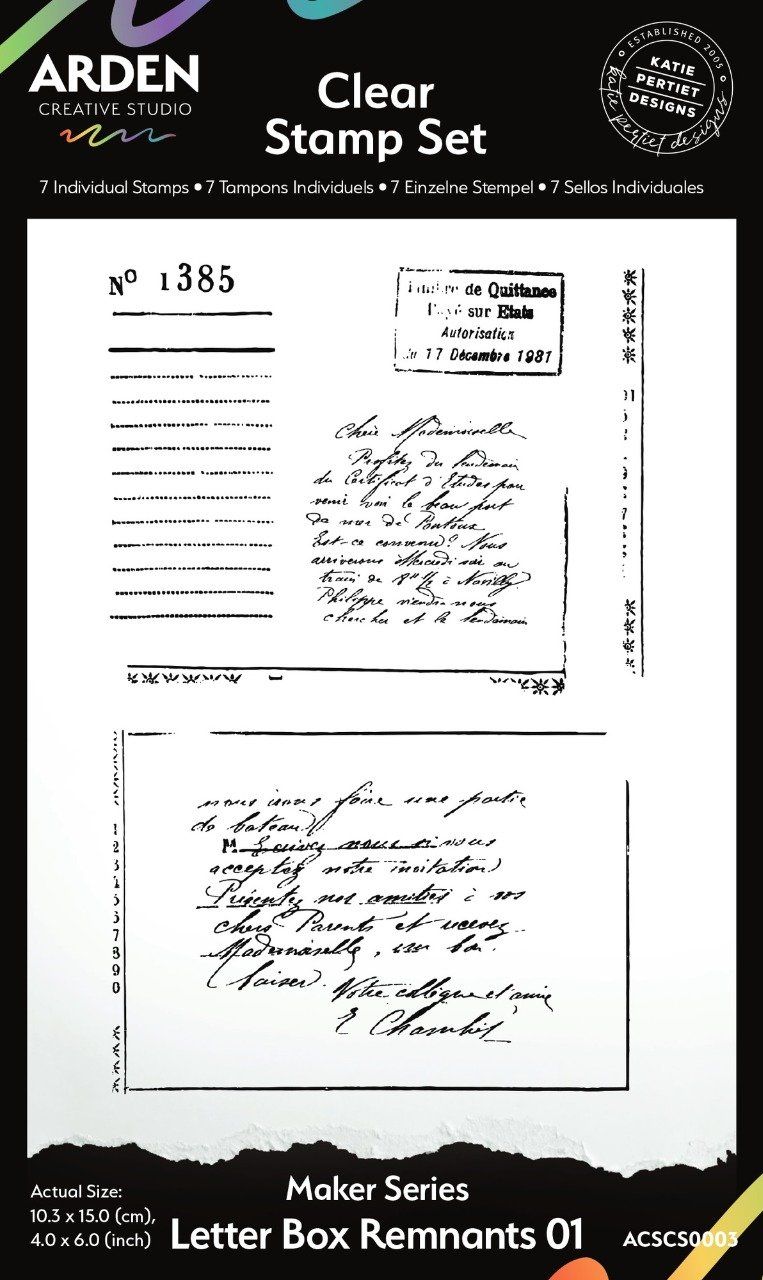 ARDEN
CREATIVE STUDIO
Clear
Stamp Set
ESTABLISHED 2005
KATIE
PERTIET
DESIGNS
katie pertiet designs
7 Individual Stamps • 7 Tampons Individuels • 7 Einzelne Stempel • 7 Sellos Individuales
Nº 1385
de Quittance
sur Etats
Autorisation
du 17 Décembre 1981
Chère Mademoiselle
Profitez du lendemain
du Certificat d'Etudes pour
venir voir le beau port
de mer de
Est-ce convenu? Nous
arriverons Mercredi soir au
train de 8h 1/2 à
Philippe viendra nous
chercher et le lendemain
nous irons faire une partie
de bateau
Ecrivez nous si vous
acceptez notre invitation
Présentez nos amitiés à vos
chers Parents et recevez
Mademoiselle, un bon
baiser.
Votre collègue et amie
E
1
2
3
7
8
9
0
Actual Size:
10.3 x 15.0 (cm),
4.0 x 6.0 (inch)
Maker Series
Letter Box Remnants 01
ACSCS0003